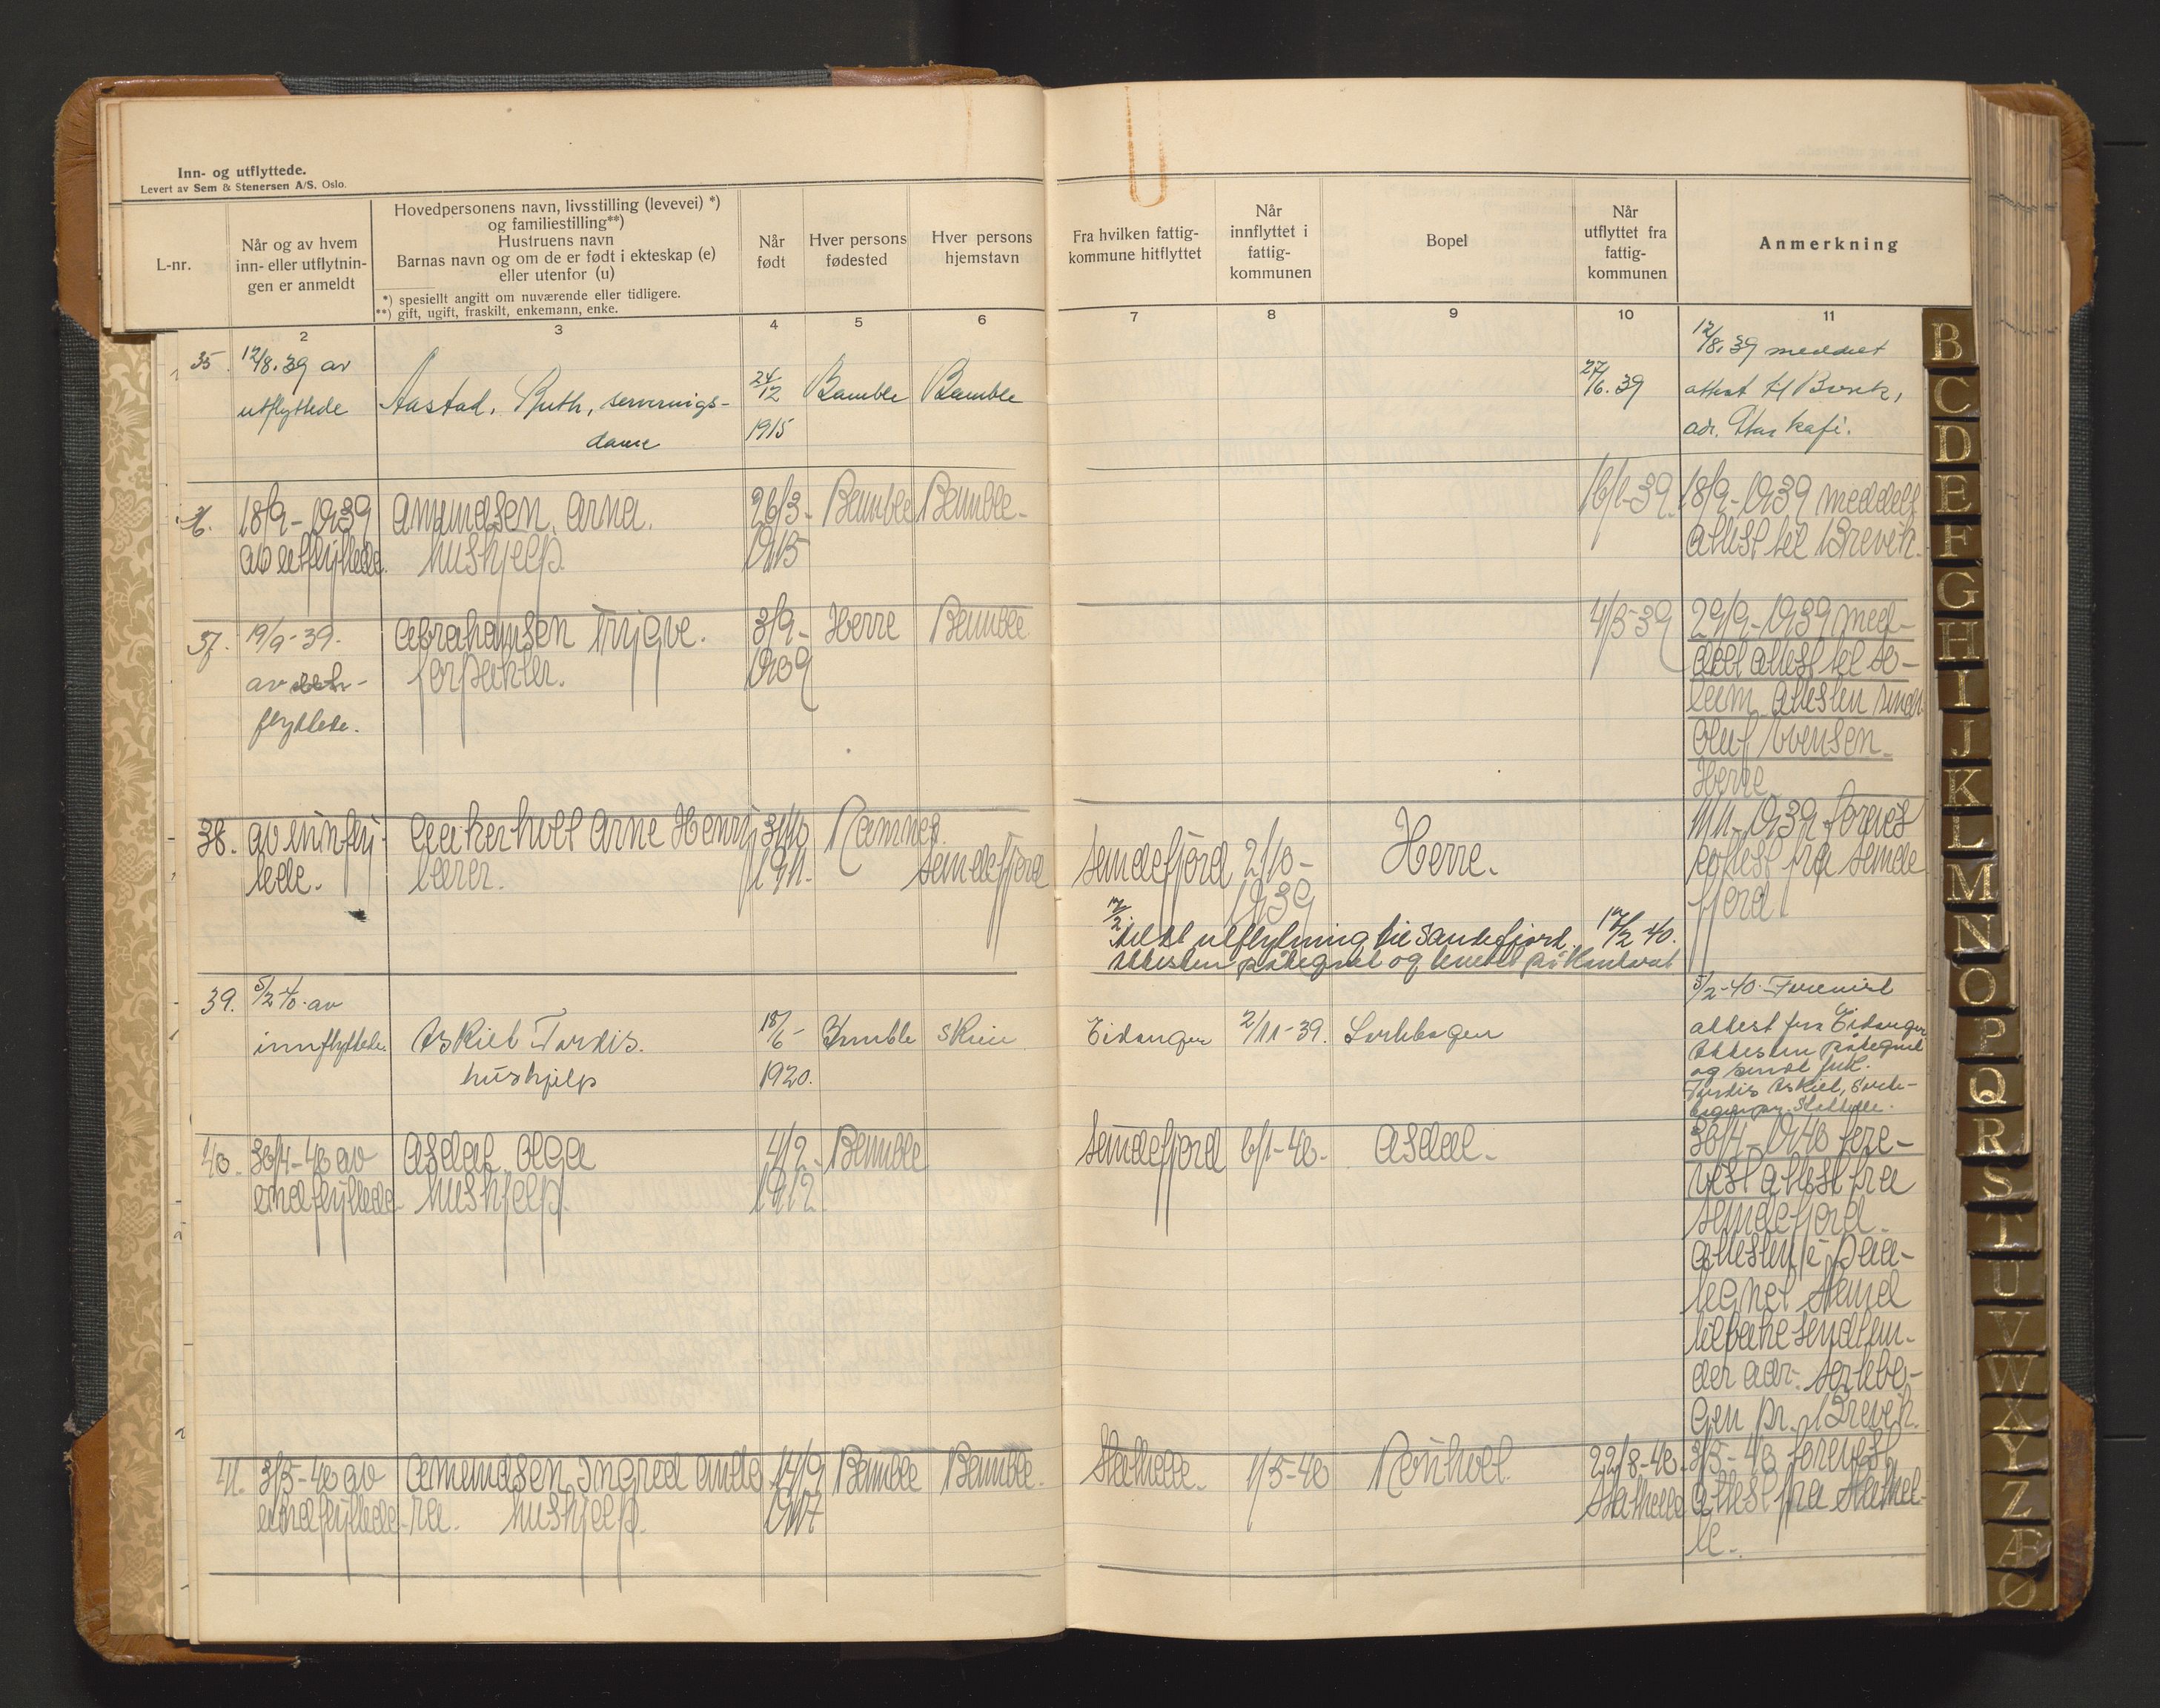 Inn- og utflyttede.
Levert av Sem & Stenersen A/S. Oslo.
L-nr.
Når og av hvem
inn- eller utflytnin-
gen er anmeldt
Hovedpersonens navn, livsstilling (levevei) *)
og familiestilling**)
Hustruens navn
Barnas navn og om de er født i ekteskap (e)
eller utenfor (u)
*) spesiellt angitt om nuværende eller tidligere.
**) gift, ugift, fraskilt, enkemann, enke.
Når
født
Hver persons
fødested
Hver persons
hjemstavn
Fra hvilken fattig-
kommune hitflyttet
Når
innflyttet i
fattig-
kommunen
Bopel
Når
utflyttet fra
fattig-
kommunen
Anmerkning
2 3 4 5 6 7 8 9 10 11
35. 12/8.39 av
utflyttede
Aastad, Ruth, serverings-
dame
24/12
1915
Bamble
Bamble
27/6.39
12/8.39 meddelt
attest til
adr. kafe.
36. 18/9-1939
av utflyttede
Amundsen, Arna.
hushjelp.
26/3-
1915
Bamble
Bamble-
16/1-39.
18/9-1939 meddelt
attest til Brevik.
37. 19/9-39.
av
flyttede.
Abrahamsen Trygve.
forpakter.
3/9-
1909
Herre
Bamble
4/3-39
29/9-1939 med-
delt attest til So-
lum. Attesten sendt
Oluf Evensen.
Herre
38. av innfly-
tede.
Aakerholt Arne Henry
lærer.
31/10
1911.
Ramnes.
Sandefjord
Sandefjord
2/10-
1939
Herre.
11/11-1939 forevist
attest fra Sande
fjord
17/2. utflytning til Sandefjord. 17/2 40.
Attesten påtegnet og levert på kontoret
39. 5/2-40. av
innflyttede.
Askiel Tordis.
hushjelp
18/6-
1920.
Bamble
Skien
Eidanger
2/11-39.
Sortebogen
5/2-40. Forevist
attest fra Eidanger
Attesten påtegnet
og sendt frk.
Tordis Askiel, Sorte-
bogen pr. Stathelle.
40. 30/4-40 av
indflyttede
Asdal Olga
hushjelp.
4/2-
1912.
Bamble
Sandefjord
6/1-40.
Asdal.
30/4-1940 fore-
vist attest fra
Sandefjord.
Attesten i paa-
tegnet stand
tilbake sendt un-
der adr. Sortebo-
gen pr. Brevik.
41. 3/5-40 av
indflyttede
Amundsen Ingred
hushjelp.
14/9
1917
Bamble
Bamble.
Stathelle.
1/5-40
Rønholt.
22/8-40.
Stathelle
3/5-40 forevist
attest fra Stathel-
le.
B
C
D
E
F
G
H
I
J
K
L
M
N
O
P
Q
R
S
T
U
V
W
X
Y
Z
Æ
Ø